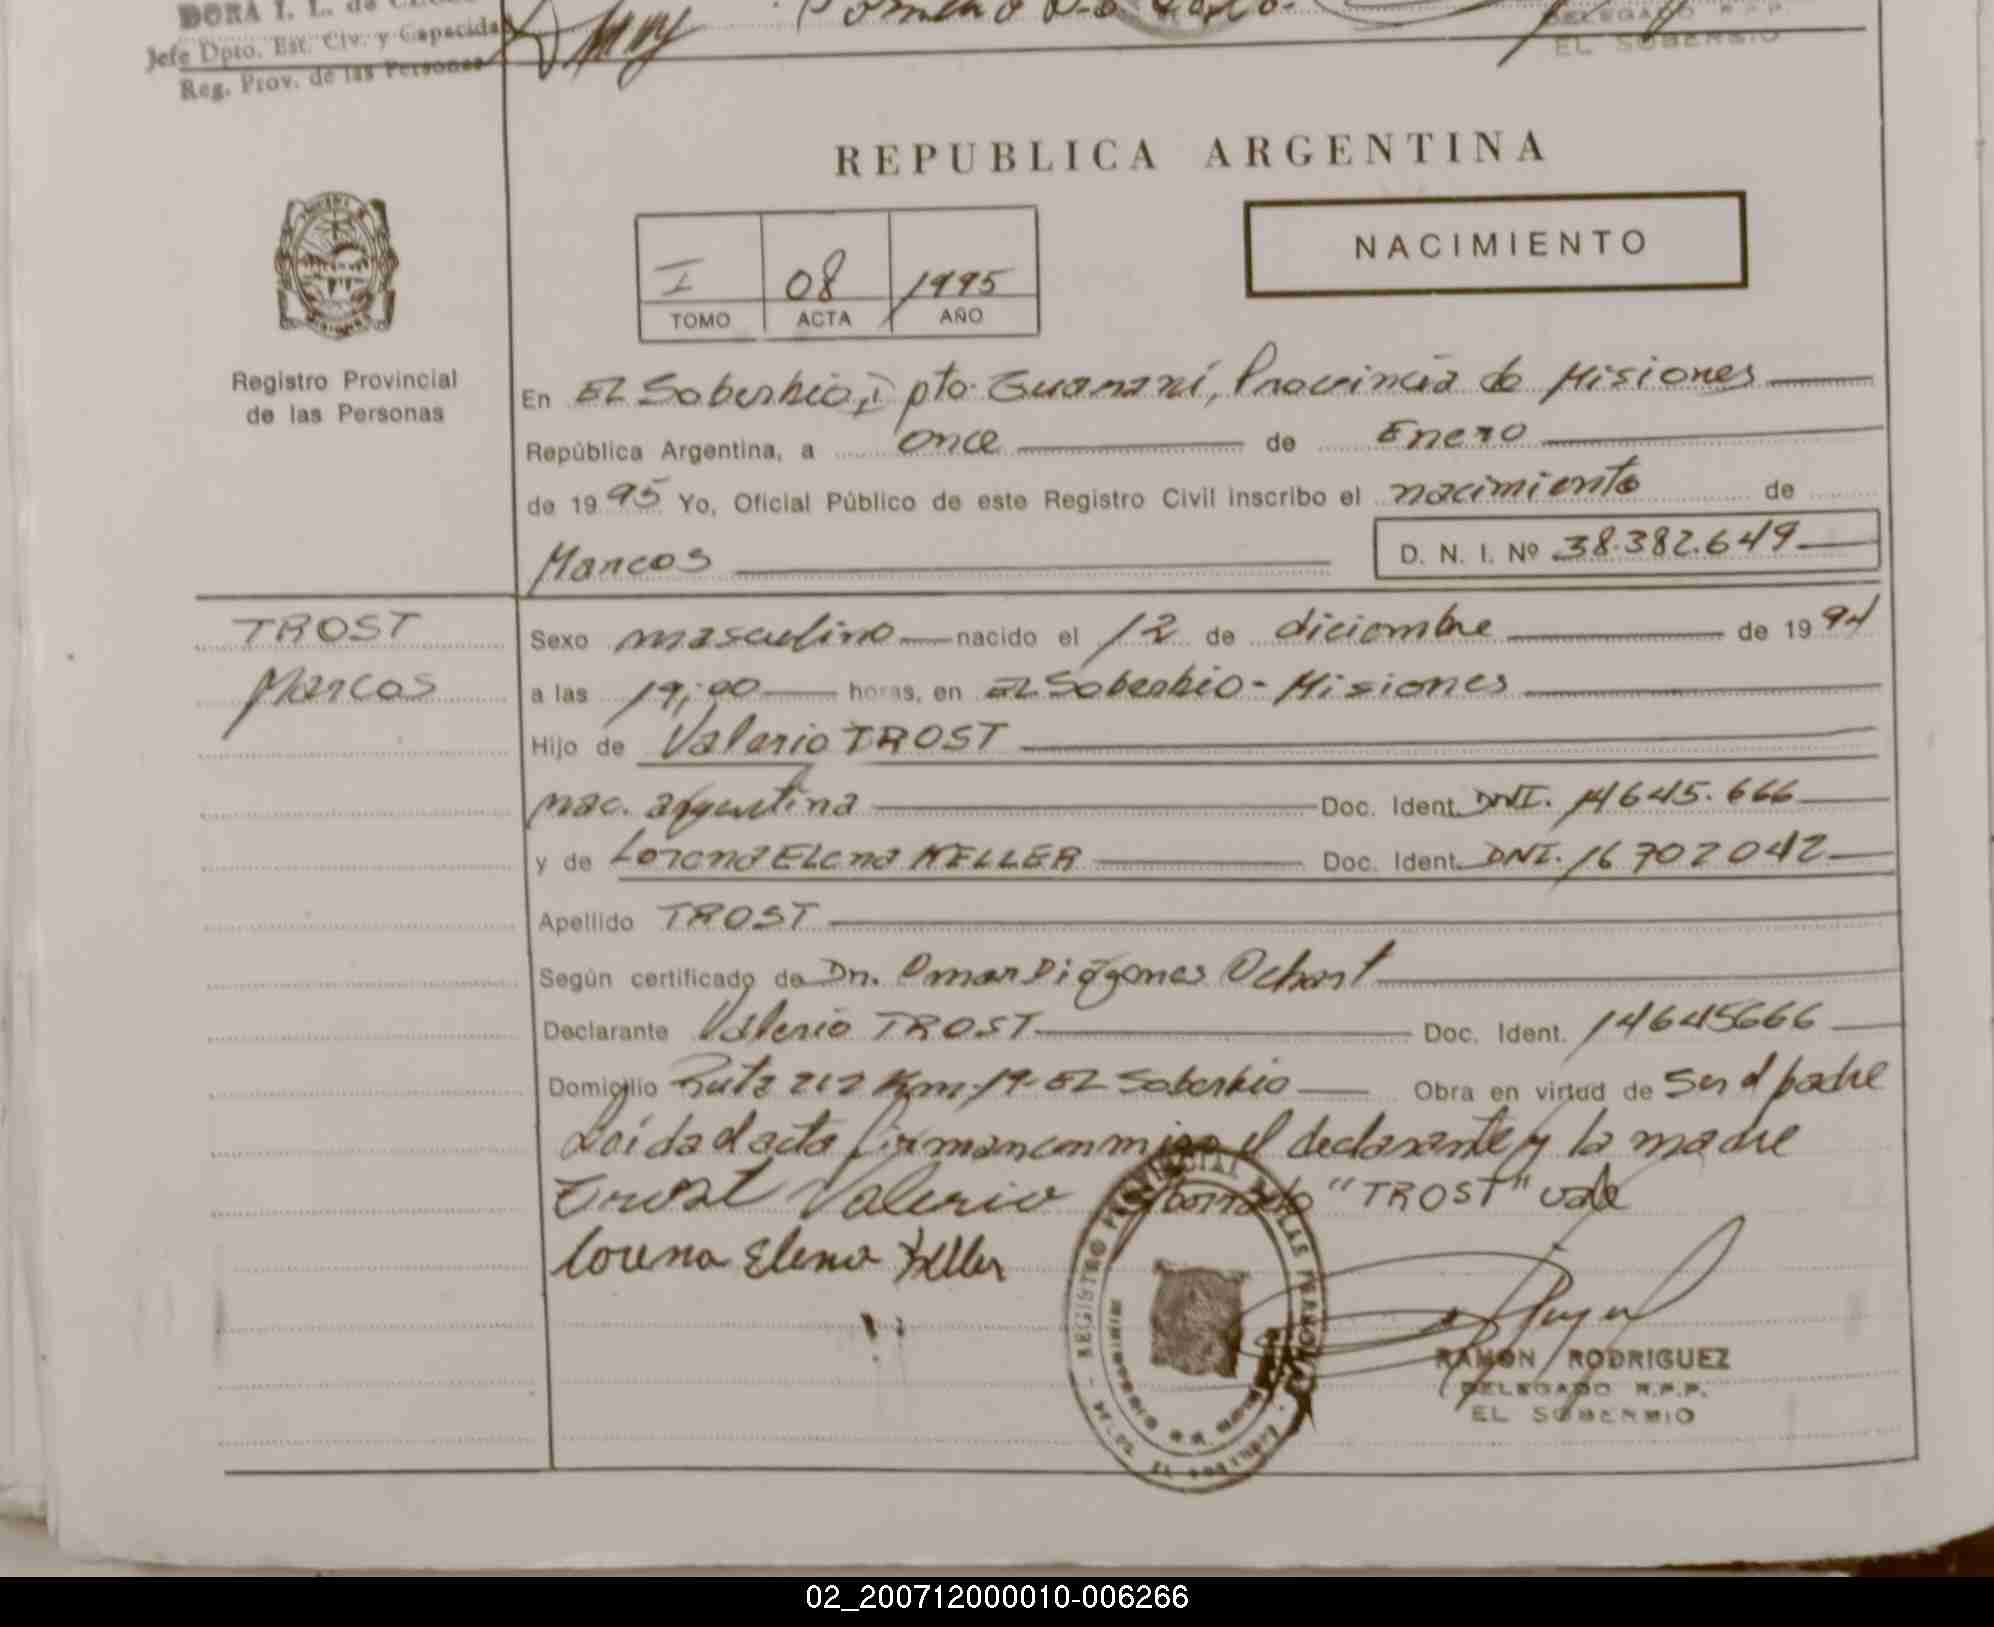 DORA I. L. de
Jefe Dpto. Est. Civ. y Capacidad
Reg. Prov. de las Personas
DELEGADO R.P.P.
EL SOBERBIO
REPUBLICA ARGENTINA
I 08 1995
TOMO ACTA AÑO
NACIMIENTO
Registro Provincial
de las Personas
En EL Soberbio, Dpto. Guaraní, Provincia de Misiones
República Argentina, a once de Enero
de 1995 Yo, Oficial Público de este Registro Civil inscribo el nacimiento de
Marcos D. N. I. Nº 38.382.649
TROST
Marcos
Sexo masculino nacido el 12 de diciembre de 1994
a las 19,00 horas, en EL Soberbio - Misiones
Hijo de Valerio TROST
nac. argentina Doc. Ident. DNI. 14645.666
y de Lorena ELena KELLER Doc. Ident. DNI. 16702042
Apellido TROST
Según certificado de Dn. Omar Diógenes
Declarante Valerio TROST Doc. Ident. 14645666
Domicilio Ruta 212 Km. 19 - EL Soberbio Obra en virtud de ser el padre
Leída el acta firman conmigo el declarante y la madre
Trost Valerio "TROST" vale
Lorena Elena Keller
REGISTRO PROVINCIAL DE LAS PERSONAS
RAMON RODRIGUEZ
DELEGADO R.P.P.
EL SOBERBIO
02_200712000010-006266